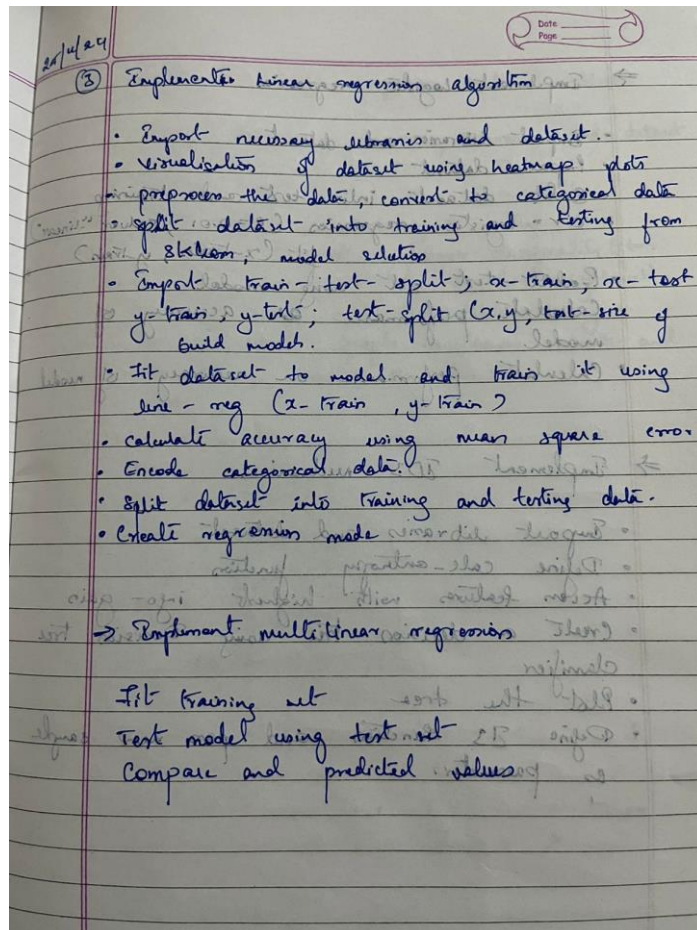 Date
Page
③ Implement Linear regression algorithm
• Import necessary libraries and dataset.
• visualisation of dataset using heatmap plots
• preprocess the data, convert to categorical data
• split dataset into training and testing from
sklearn, model selution
• Import train-test-split; x-train, x-test
y-train, y-test; test-split (x,y, test-size of
build model.
• Fit dataset to model and train it using
line-reg (x-train, y-train)
• calculate accuracy using mean square error
• Encode categorical data.
• Split dataset into training and testing data.
• Create regression mode
→ Implement multilinear regression
Fit training set
Test model using test set
Compare and predicted values